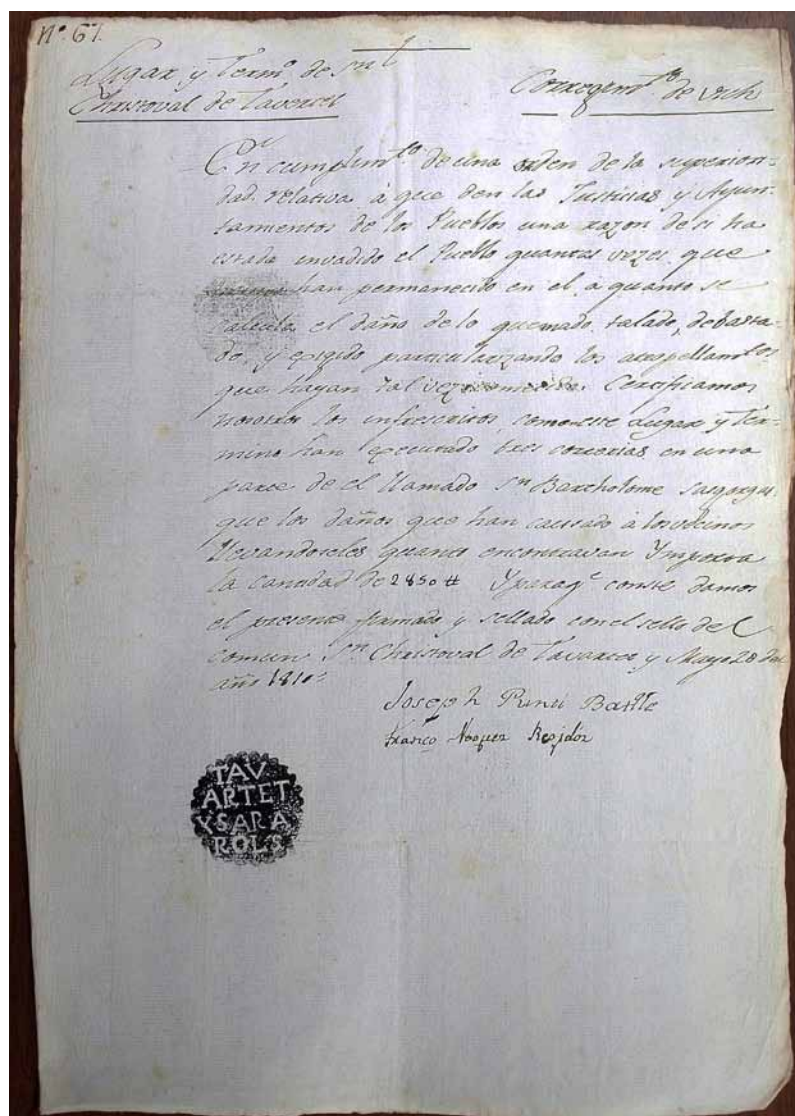 Nº. 67.
Lugar y Termº. de Sn
Christoval de Tavertet
Corregimto. de Vich
En cumplimto. de una orden de la superiori-
dad relativa à que den las Justicias y Ayun-
tamientos de los Pueblos una razon de si ha
estado invadido el Pueblo quantas vezes, que
han permanecido en el, à quanto se
calcula el daño de lo quemado, talado, debasta-
do, y exigido particularizando los atropellamtos
que hayan tal vez cometido. Certificamos
nosotros los infrescritos, como este Lugar y Ter-
mino han executado tres correrias en una
parte de el llamado Sn. Bartholome Sasgorgas,
que los daños que han causado à los vecinos
llevandoseles quanto encontravan Importa
la cantidad de 2850 ⵌ Y paraqe. conste damos
el presente firmado y sellado con el sello del
comun Sn. Christoval de Tavartet y Mayo 28 del
año 1810=
Joseph Batlle
Franco Noguer Regidor
TAV
ARTET
Y SARA
ROLS